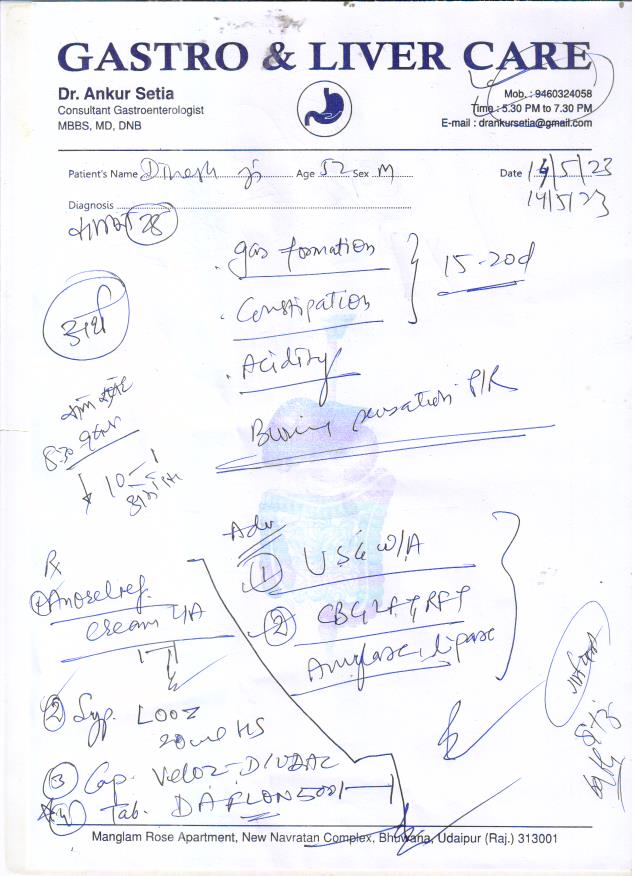 GASTRO & LIVER CARE
Dr. Ankur Setia
Consultant Gastroenterologist
MBBS, MD, DNB
Mob. : 9460324058
Time : 5.30 PM to 7.30 PM
E-mail : drankursetia@gmail.com
Patient's Name Dinesh ji Age 52 Sex M Date 14/5/23
14/5/23
Diagnosis
28
. gas formation
15-20d
. Constipation
. Acidity
Burning sensation P/R
8:30
10-1
Adv
① USG W/A
② CBC, LFT, RFT
Amylase, lipase
Rx
① Anorelief
cream L/A
② Syp. LOOZ
20ml HS
③ Cap. VELOZ-D
④ Tab. DAFLON 500
Manglam Rose Apartment, New Navratan Complex, Bhuwana, Udaipur (Raj.) 313001